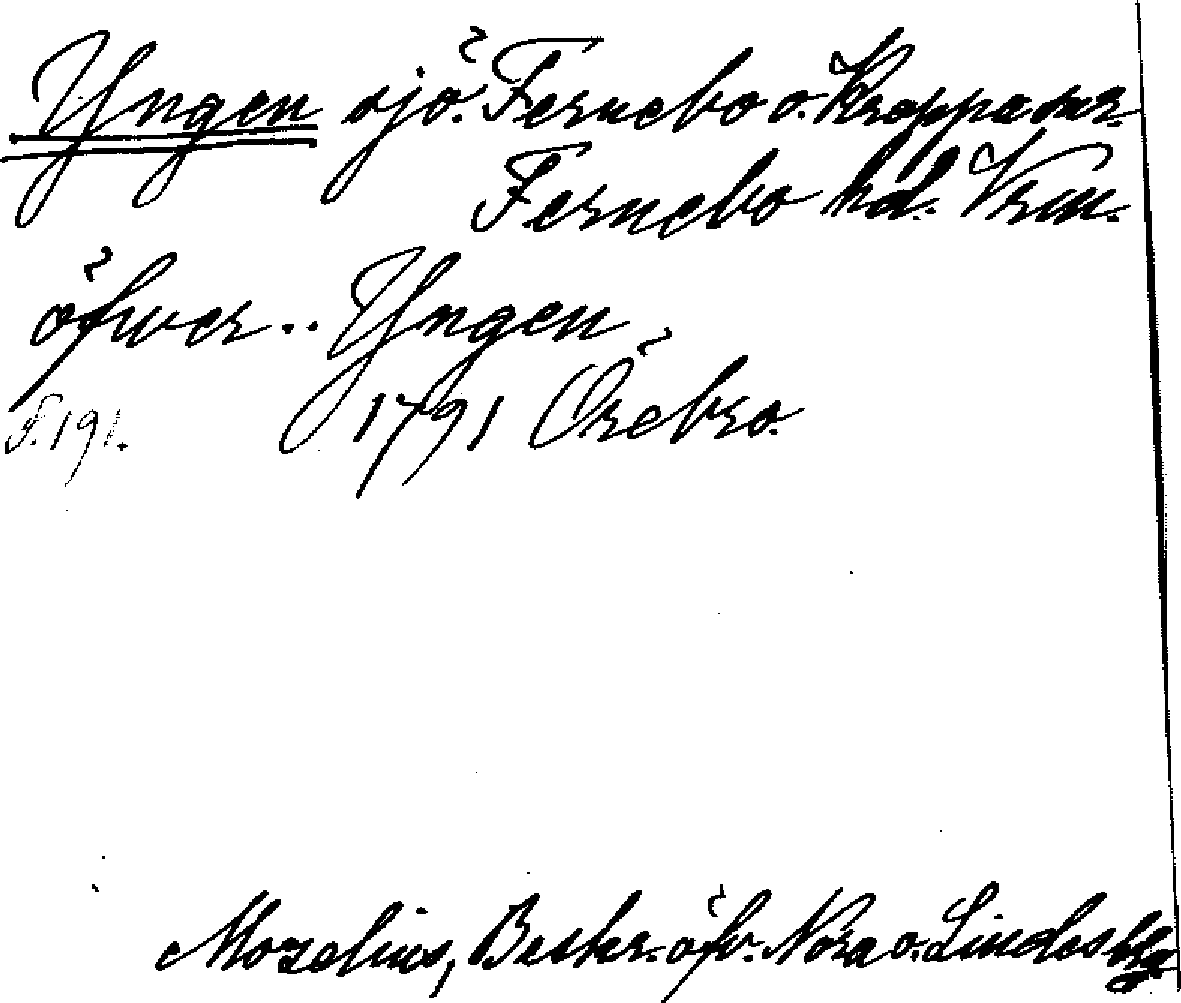 Yngen sjö. Fernebo o. Kroppa snr.
Fernebo hd. Vrm.
öfver .. Yngen
F. 191. 1791 Örebro.
Mozelius, Beskr. öfv. Nora o. Lindesbg